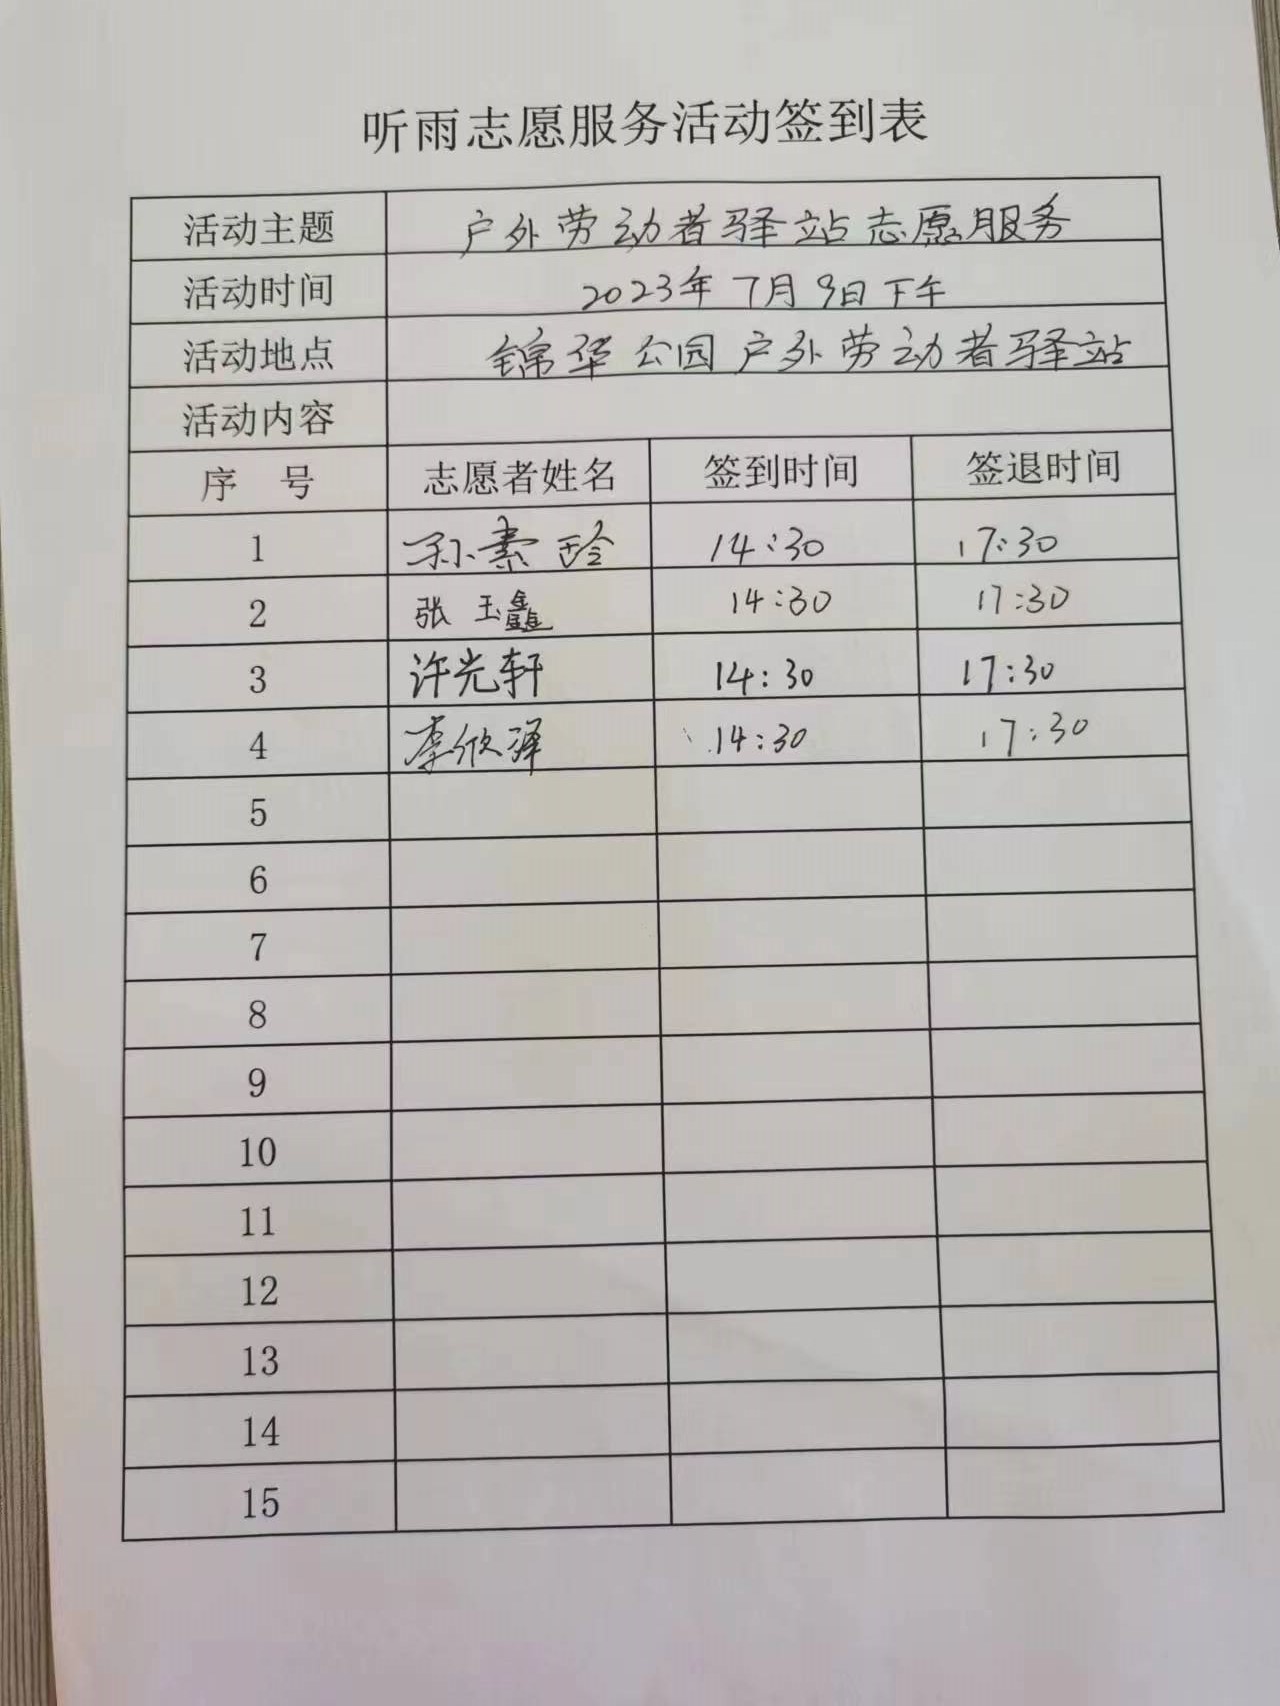 听雨志愿服务活动签到表
活动主题 户外劳动者驿站志愿服务
活动时间 2023年7月9日下午
活动地点 锦华公园户外劳动者驿站
活动内容
序 号 志愿者姓名 签到时间 签退时间
1 孙素玲 14:30 17:30
2 张玉鑫 14:30 17:30
3 许光轩 14:30 17:30
4 李欣泽 14:30 17:30
5
6
7
8
9
10
11
12
13
14
15